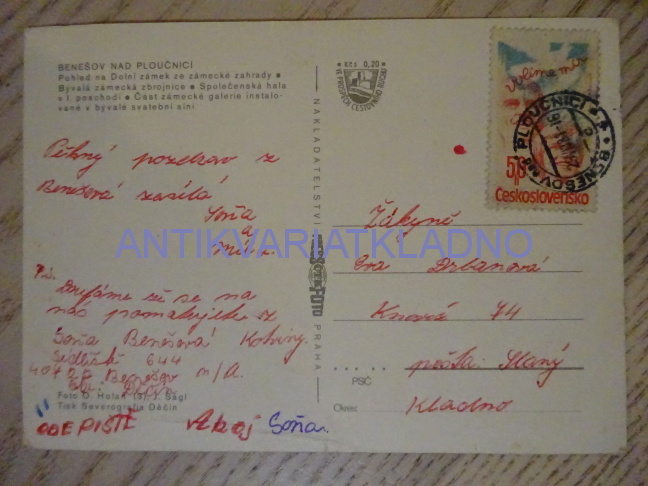 BENEŠOV NAD PLOUČNICÍ
Pohled na Dolní zámek ze zámecké zahrady •
Bývalá zámecká zbrojnice • Společenská hala
v I. poschodí • Část zámecké galerie instalo-
vané v bývalé svatební síni
Kčs 0,20
VE PROSPĚCH CESTOVNÍHO RUCHU
Pěkný pozdrav z
Benešova zasílá
Soňa
a
P.S.
Doufáme že se na
nás pamatujete z
Soňa Benešová Kotviny.
Sedliště 644
407 22 Benešov n/
Foto O. Holan (3), J. Ságl
Tisk Severografia Děčín
ODEPIŠTE Ahoj Soňa.
NAKLADATELSTVÍ
FOTO
PRAHA
5,
Československo
BENEŠOV nad PLOUČNICÍ
Žákyně
Eva Drbanová
Knovíz 74
pošta. Slaný
PSČ
Okres
Kladno
ANTIKVARIATKLADNO